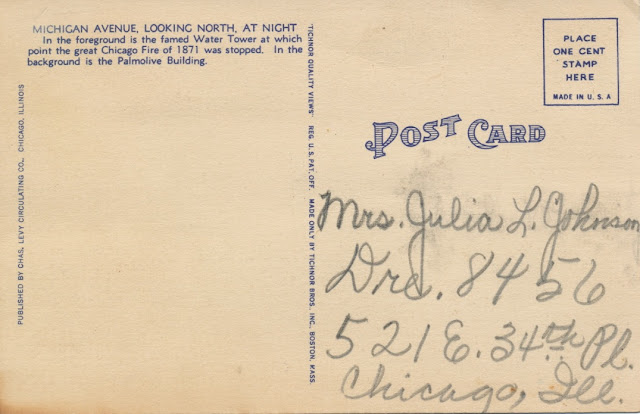 MICHIGAN AVENUE, LOOKING NORTH, AT NIGHT
In the foreground is the famed Water Tower at which
point the great Chicago Fire of 1871 was stopped. In the
background is the Palmolive Building.
PUBLISHED BY CHAS. LEVY CIRCULATING CO., CHICAGO, ILLINOIS
"TICHNOR QUALITY VIEWS" REG. U. S. PAT. OFF. MADE ONLY BY TICHNOR BROS., INC., BOSTON, MASS.
PLACE
ONE CENT
STAMP
HERE
MADE IN U. S. A
POST CARD
Mrs. Julia L. Johnson
Dre. 8456
521 E. 34th Pl.
Chicago, Ill.